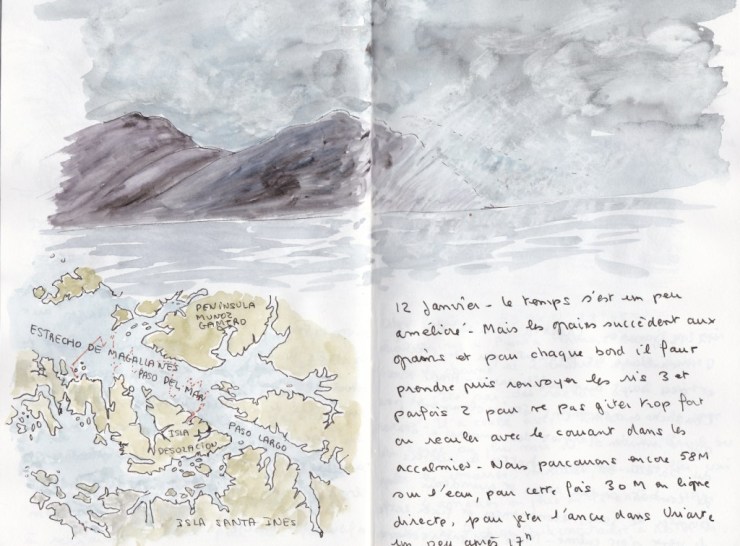 PENÍNSULA
MUNOZ
GAMERO
ESTRECHO DE MAGALLANES
PASO DEL MAR
ISLA
DESOLACION
PASO LARGO
ISLA SANTA INES
12 Janvier - le temps s'est un peu
amélioré - Mais les grains succèdent aux
grains et pour chaque bord il faut
prendre puis renvoyer les ris 3 et
parfois 2 pour ne pas giter trop fort
ou reculer avec le courant dans les
accalmies - Nous parcourons encore 58M
sur l'eau, pour cette fois 30 M en ligne
directe, pour jeter l'ancre dans Uriarte
un peu après 17h